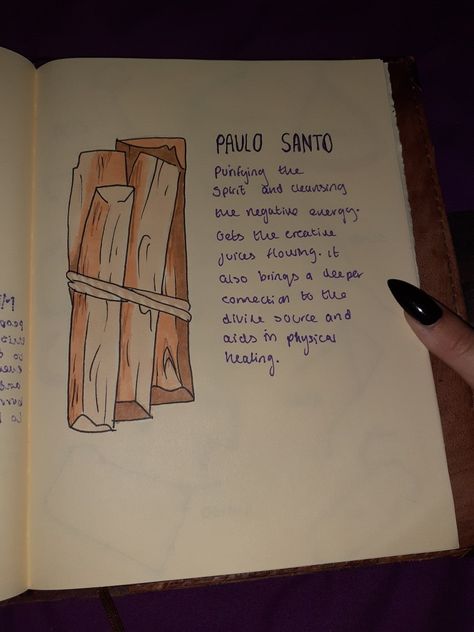 PAULO SANTO
Purifying the
spirit and cleansing
the negative energy.
Gets the creative
juices flowing. it
also brings a deeper
connection to the
divine source and
aids in physical
healing.